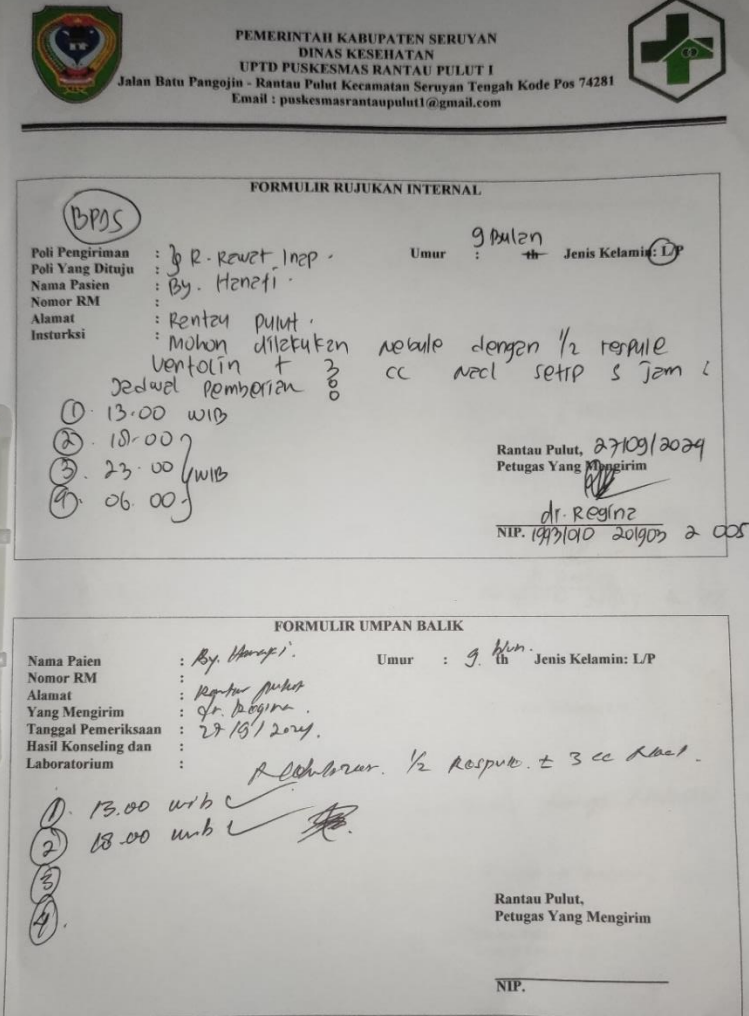 PEMERINTAH KABUPATEN SERUYAN
DINAS KESEHATAN
UPTD PUSKESMAS RANTAU PULUT I
Jalan Batu Pangojin - Rantau Pulut Kecamatan Seruyan Tengah Kode Pos 74281
Email : puskesmasrantaupulut1@gmail.com
FORMULIR RUJUKAN INTERNAL
BPJS
Poli Pengiriman :
Poli Yang Dituju : R. Rawat Inap.
Umur : 9 Bulan th Jenis Kelamin: L/P
Nama Pasien : By. Hanafi.
Nomor RM :
Alamat : Rantau Pulut.
Insturksi : Mohon dilakukan nebule dengan 1/2 respule
Ventolin + 3 cc Nacl setip 5 jam
Jadwal pemberian :
① 13.00 WIB
② 18.00
③ 23.00 WIB
④ 06.00
Rantau Pulut, 27/09/2024
Petugas Yang Mengirim
dr. Regina
NIP. 19931010 201903 2 005
FORMULIR UMPAN BALIK
Nama Paien : By. Hanafi.
Umur : 9 bln. th Jenis Kelamin: L/P
Nomor RM :
Alamat : Rantau pulut
Yang Mengirim : dr. Regina.
Tanggal Pemeriksaan : 27/9/2024.
Hasil Konseling dan :
Laboratorium :
1/2 Respule + 3 cc Nacl.
① 13.00 wib ✓
② 18.00 wib ✓
③
④.
Rantau Pulut,
Petugas Yang Mengirim
NIP.